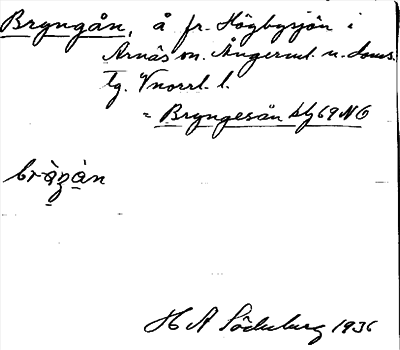 Bryngån, å fr. Högbysjön i
Arnäs sn. Ångerml. n. doms.
tg. Vnorrl. l.
= Bryngesån bl 69 NO
H A Söderberg 1936